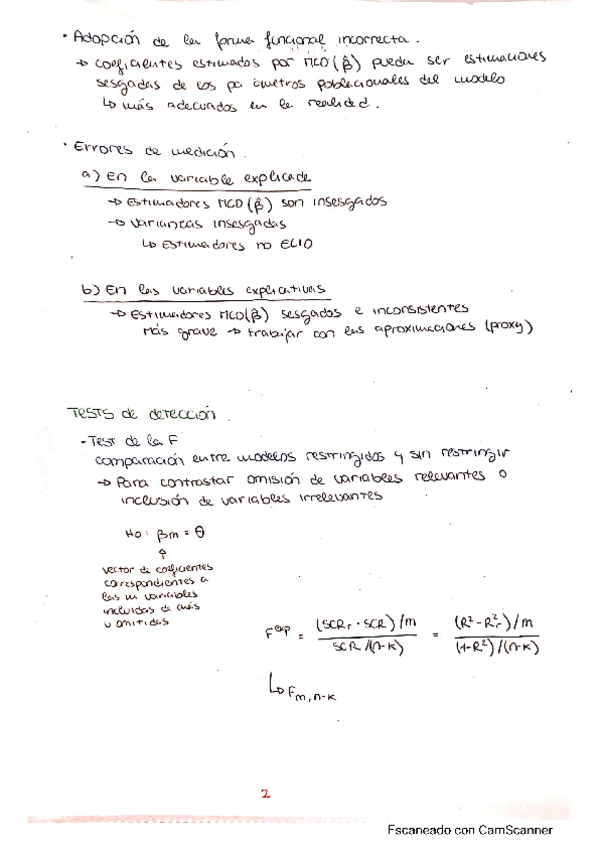 · Adopción de la forma funcional incorrecta.
→ coeficientes estimados por MCO(β̂) pueden ser estimaciones
sesgadas de los pa ámetros poblacionales del modelo
↳ más adecuados en la realidad.
· Errores de medición.
a) En la variable explicada
→ Estimadores MCO(β̂) son insesgados
→ Varianzas insesgadas
↳ Estimadores no ELIO
b) En las variables explicativas
→ Estimadores MCO(β̂) sesgados e inconsistentes
Más grave → trabajar con las aproximaciones (proxy)
Tests de detección.
- Test de la F
comparación entre modelos restringidos y sin restringir
→ Para contrastar omisión de variables relevantes o
inclusión de variables irrelevantes
H0: βm = θ
↑
vector de coeficientes
correspondientes a
las m variables
incluidas de más
u omitidas
F^exp = (SCRr · SCR)/m / SCR/(n-k) = (R² - R²r)/m / (1-R²)/(n-k)
↳ Fm, n-k
2
Escaneado con CamScanner